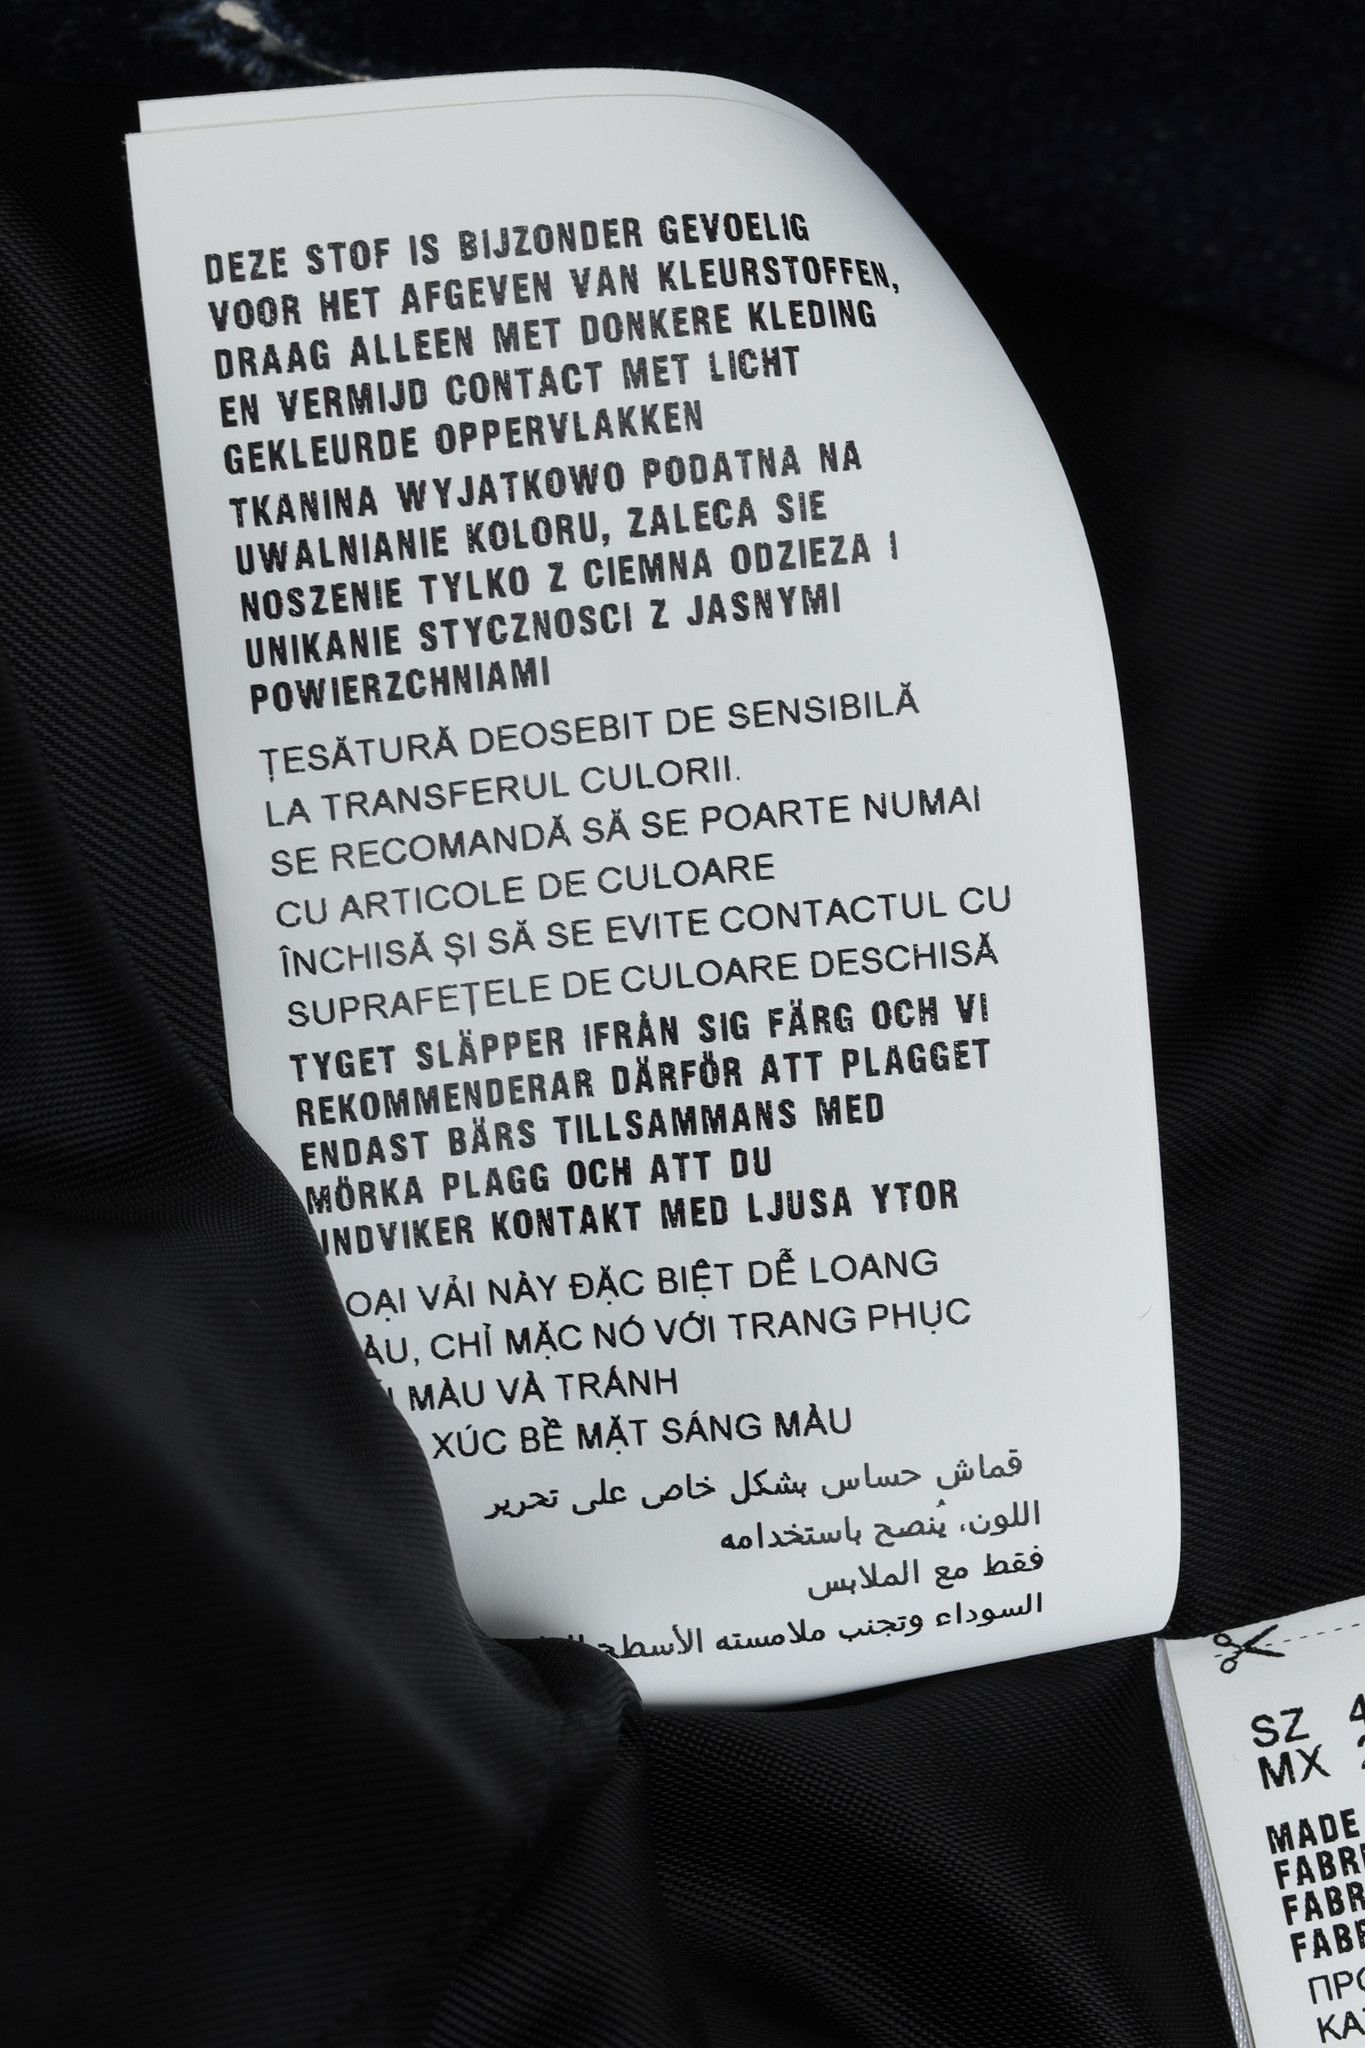 DEZE STOF IS BIJZONDER GEVOELIG
VOOR HET AFGEVEN VAN KLEURSTOFFEN,
DRAAG ALLEEN MET DONKERE KLEDING
EN VERMIJD CONTACT MET LICHT
GEKLEURDE OPPERVLAKKEN
TKANINA WYJATKOWO PODATNA NA
UWALNIANIE KOLORU, ZALECA SIE
NOSZENIE TYLKO Z CIEMNA ODZIEZA I
UNIKANIE STYCZNOSCI Z JASNYMI
POWIERZCHNIAMI
ȚESĂTURĂ DEOSEBIT DE SENSIBILĂ
LA TRANSFERUL CULORII.
SE RECOMANDĂ SĂ SE POARTE NUMAI
CU ARTICOLE DE CULOARE
ÎNCHISĂ ȘI SĂ SE EVITE CONTACTUL CU
SUPRAFEȚELE DE CULOARE DESCHISĂ
TYGET SLÄPPER IFRÅN SIG FÄRG OCH VI
REKOMMENDERAR DÄRFÖR ATT PLAGGET
ENDAST BÄRS TILLSAMMANS MED
MÖRKA PLAGG OCH ATT DU
UNDVIKER KONTAKT MED LJUSA YTOR
OẠI VẢI NÀY ĐẶC BIỆT DỄ LOANG
ÀU, CHỈ MẶC NÓ VỚI TRANG PHỤC
MÀU VÀ TRÁNH
XÚC BỀ MẶT SÁNG MÀU
قماش حساس بشكل خاص على تحرير
اللون، يُنصح باستخدامه
فقط مع الملابس
السوداء وتجنب ملامسته الأسطح
SZ 4
MX 2
MADE
FABRI
FABR
FABR
ПРО
КАЗ